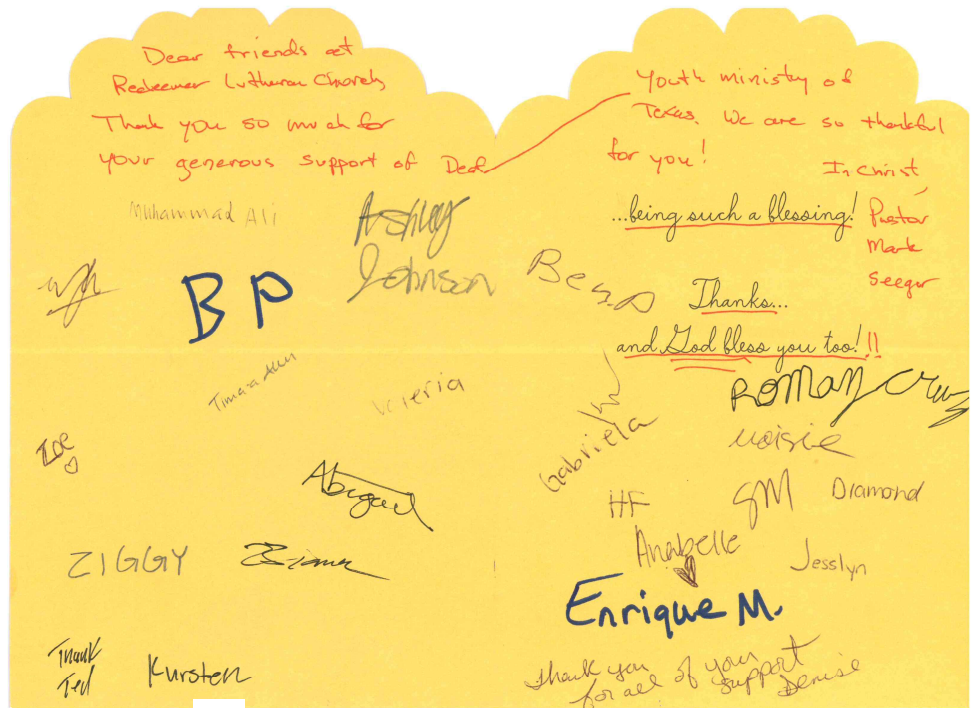 Dear friends at
Redeemer Lutheran Church,
Thank you so much for
your generous support of Deaf
Youth ministry of
Texas. We are so thankful
for you!
In Christ,
Pastor
Mark
Seeger
...being such a blessing!
Thanks...
and God bless you too!!!
Muhammad Ali
Ashley
Johnson
BP
Valeria
Zoe
Abigail
ZIGGY
Thank
Ted
Kursten
Roman Cruz
Gabriela
HF
GM
Diamond
Anabelle
Jesslyn
Enrique M.
Thank you
for all of your
support
Denise